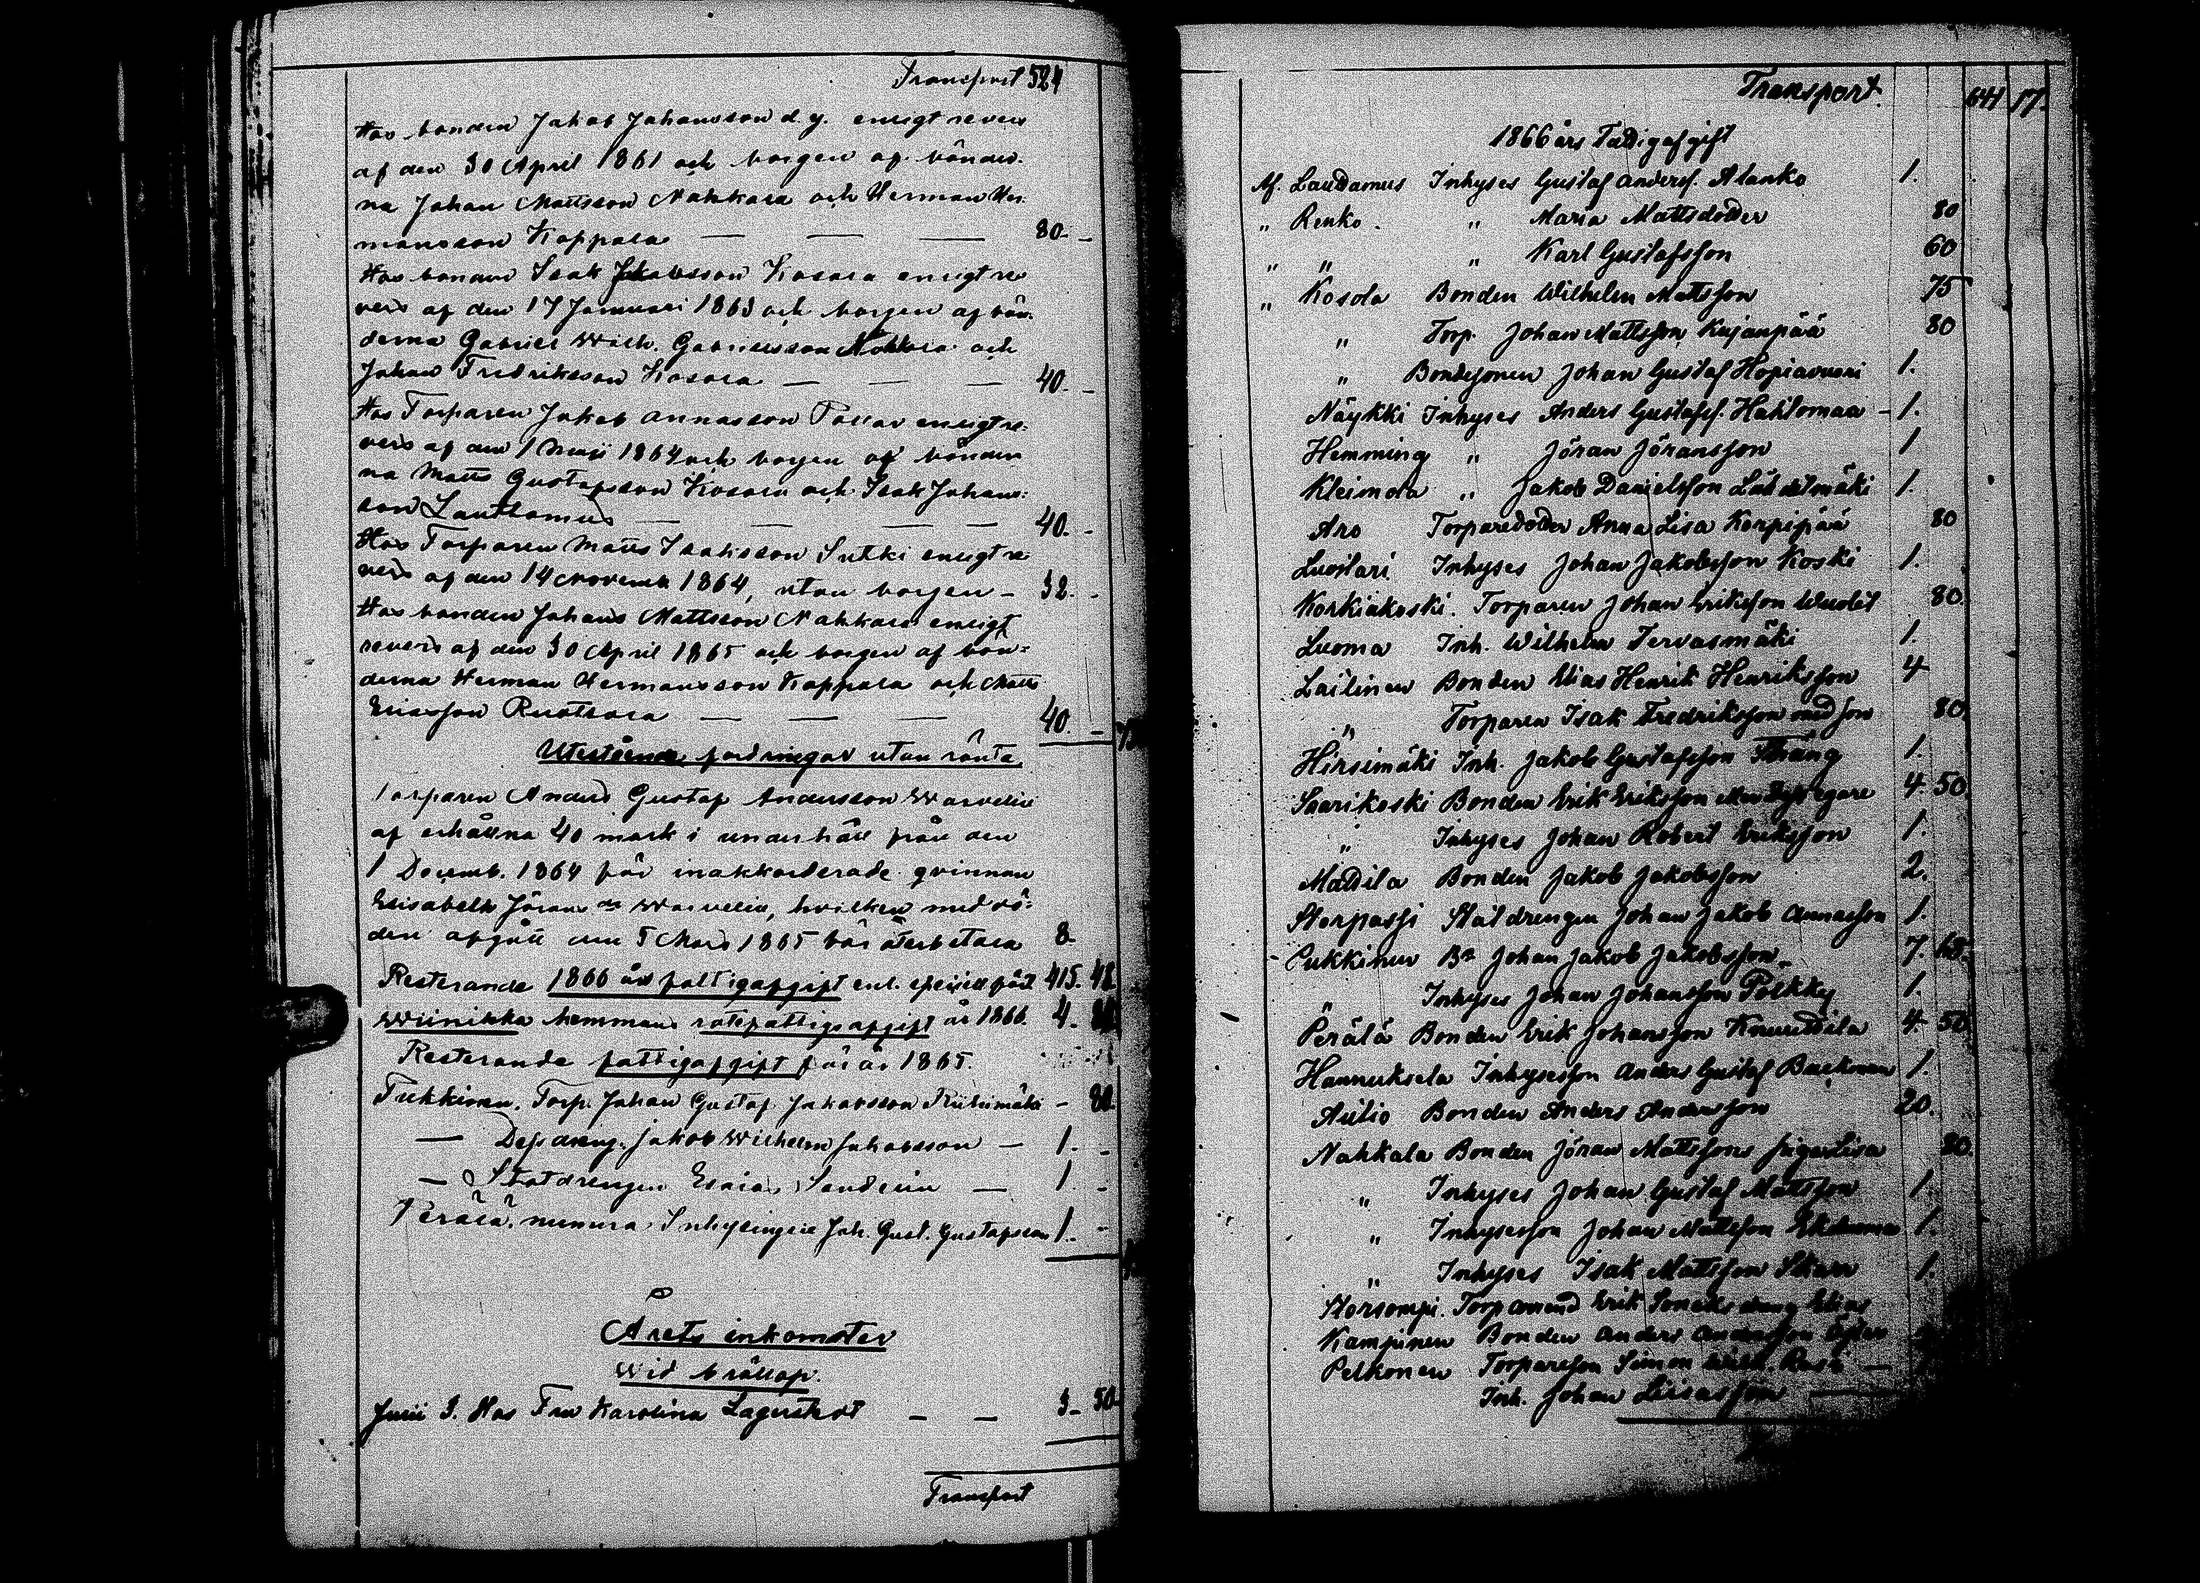 Transport 524
Hos bonden Jakob Johansson d.y. enligt revers
af den 30 April 1861 och borgen af bönder-
na Johan Mattsson Nahkala och Herman Her-
mansson Koppala — — — 80. –
Hos bonden Isak Jakobsson Kosola enligt re-
vers af den 17 Januari 1863 och borgen af bön-
derna Gabriel Wilh. Gabrielsson och
Johan Fredriksson Kosola — — — 40. –
Hos Torparen Jakob Annasson enligt re-
vers af den 1 Maji 1864 och borgen af bönder
na Matts Gustafsson Kosola och Isak Johans-
son Laudamus — — — — 40. –
Hos Torparen Matts Isaksson enligt re
vers af den 14 Novemb 1864, utan borgen – 32. –
Hos bonden Johans Mattsson Nahkala enligt
revers af den 30 April 1865 och borgen af bön-
derna Herman Hermansson Koppala och Matts
Eliasson Ruotsala — — — 40. –
Utestående fordringar utan ränta
Torparen Anders Gustaf Andersson
af erhållna 40 mark i underhåll från den
1 Decemb. 1864 för inakkorderade qvinnan
Elisabeth Jörans dr, hvilken med dö-
den afgått den 5 Mars 1865 bör återbetala 8
Resterande 1866 års fattigafgift enl. 415. 48
Wiinikka hemmans rotefattigafgift år 1866. 4.
Resterande fattigafgift för år 1865.
Torp. Johan Gustaf Jakobsson Riihimäki – 80.
— Dess dreng. Jakob Wilhelm Jakobsson — 1. –
— Statdrengen Esaias — 1 –
Perälä Joh. Gust. Gustafsson 1. –
Årets inkomster
Wid bröllop.
Junii 3. Hos Fru Karolina Lagerstedt – – 3– 50
Transport
Transport. 641 17.
1866 års Fattigafgift
Af. Laudamus Inhyses Gustaf Andersf. Alanko 1.
" Renko. " Maria Mattsdotter 80
" " " Karl Gustafsson 60
" Kosola Bonden Wilhelm Mattsson 75
" Torp. Johan Mattsson Kujanpää 80
" Bondesonen Johan Gustaf Hopiavuori 1.
Näykki Inhyses Anders Gustafsf. Hahtomaa – 1.
Hemming " Jöran Jöransson 1
Kleimola " Jakob Danielsson 1.
Aro Torparedotter Anna Lisa Korpipää 80
Luostari Inhyses Johan Jakobsson Koski 1.
Korkiakoski. Torparen Johan Eriksson 80.
Luoma Inh. Wilhelm Tervasmäki 1.
Lailinen Bonden Elias Henrik Henriksson 4
" Torparen Isak Fredriksson med son 80.
Hirsimäki Inh. Jakob Gustafsson 1.
Saarikoski Bonden Erik Eriksson 4. 50.
" Inhyses Johan Robert Eriksson 1.
Mattila Bonden Jakob Jakobsson 2.
Storpassi Statdrengen Johan Jakob Annasson 1.
Johan Jakob Jakobsson 7. 68.
" Inhyses Johan Johansson 1.
Perälä Bonden Erik Johansson Knuuttila 4. 50
Hannuksela Inhysesson Anders Gustaf Backman 1.
Aulio Bonden Anders Andersson 20.
Nahkala Bonden Jöran Mattssons pigan Lisa 80.
" Inhyses Johan Gustaf Mattsson 1.
" Inhysesson Johan Mattsson 1.
" Inhyses Isak Mattsson 1.
Storsompi. Erik Elias
Kampinen Bonden Anders Andersson
Pelkonen Torpareson Simon Wilh.
Inh. Johan